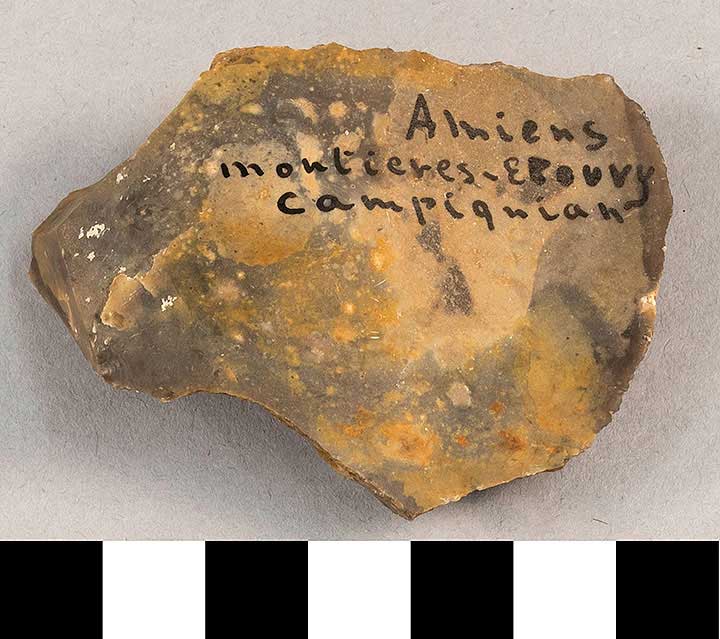 Amiens
montieres-EBOUVY
campiquian